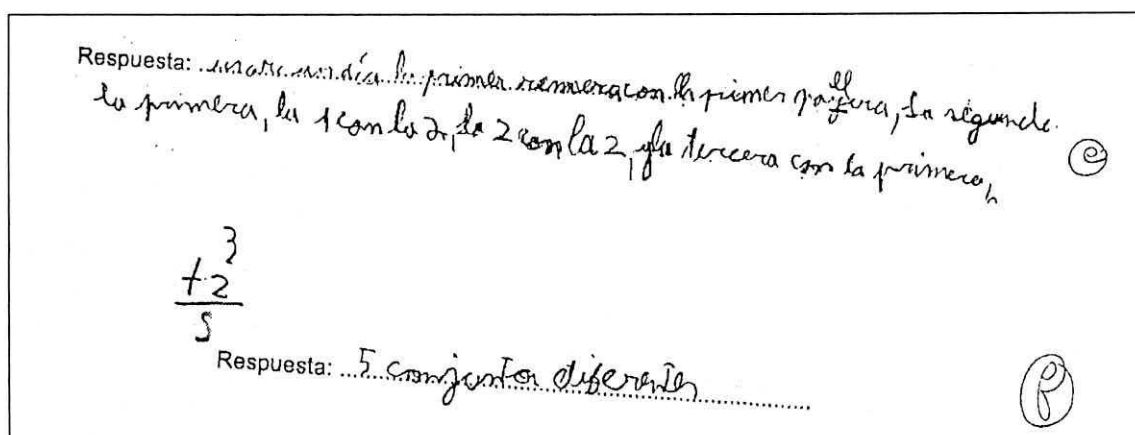 Respuesta: un día la primer remera con la primer pollera, la segunda
la primera, la 1 con la 2, la 2 con la 2, y la tercera con la primera,
e
3
+2
5
Respuesta: 5 conjuntos diferentes
f